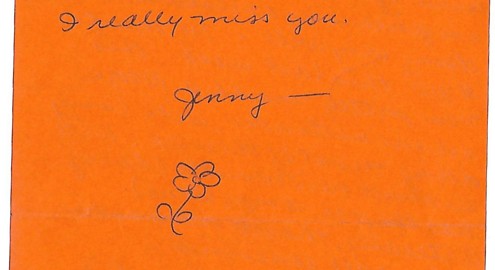 I really miss you.
Jenny —